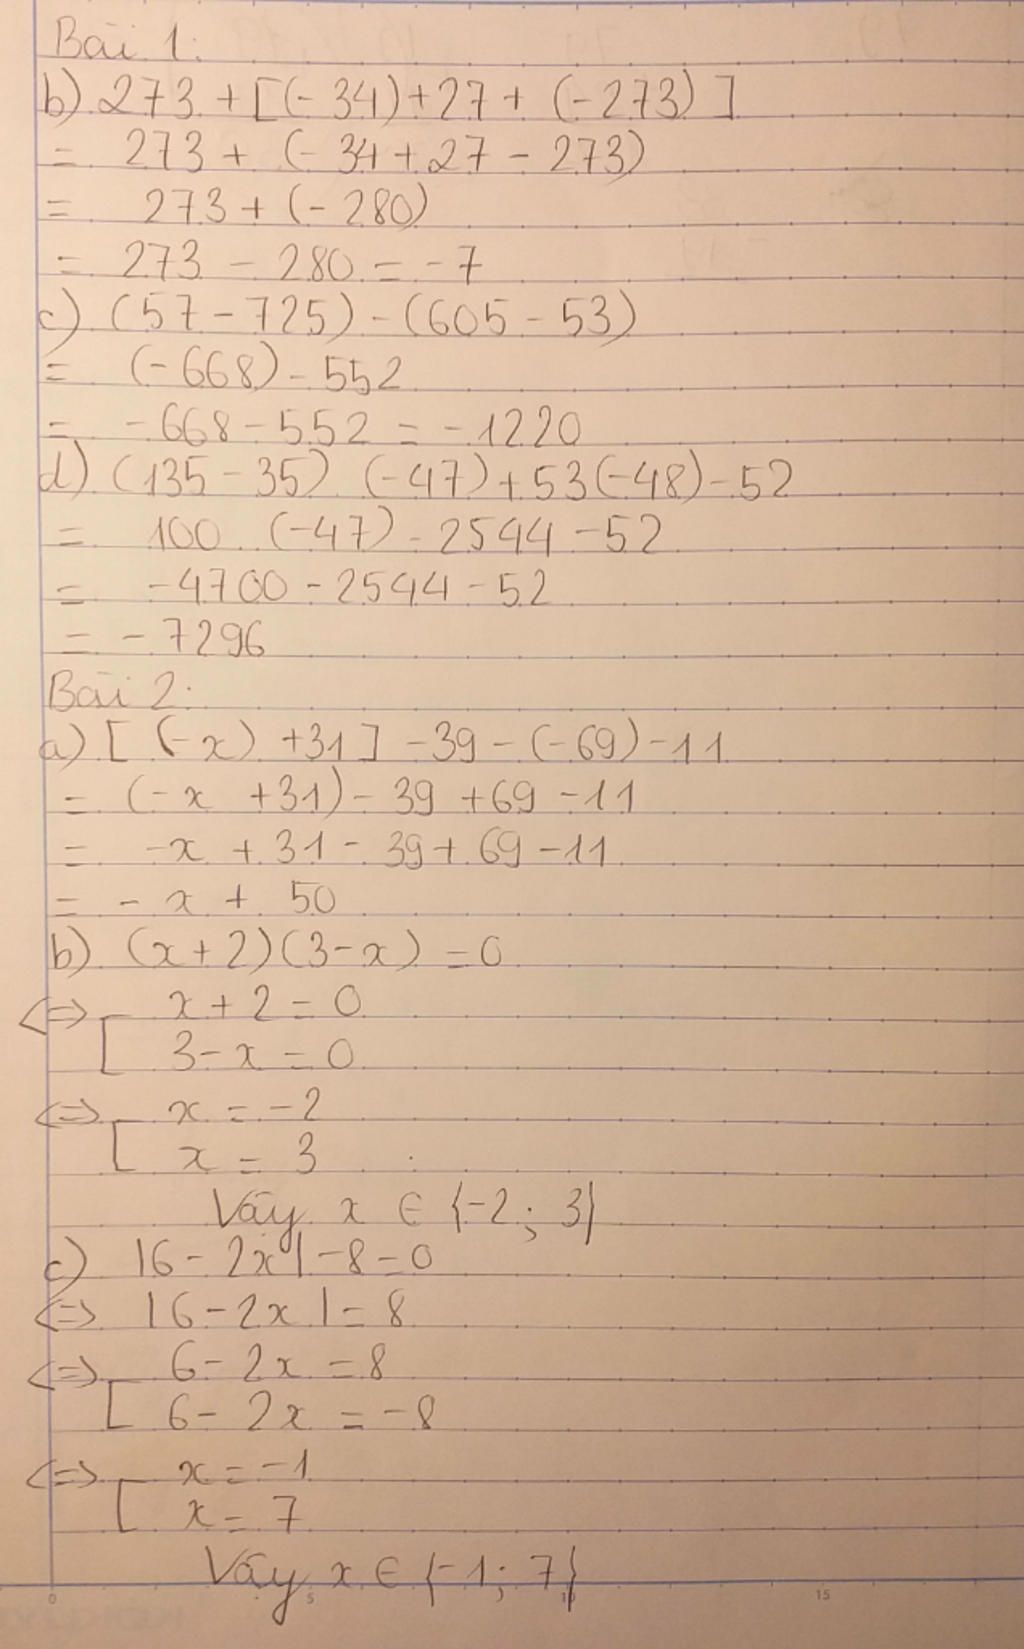 Bài 1:
b) 273 + [(-34) + 27 + (-273)]
= 273 + (-34 + 27 - 273)
= 273 + (-280)
= 273 - 280 = -7
c) (57 - 725) - (605 - 53)
= (-668) - 552
= -668 - 552 = -1220
d) (135 - 35) (-47) + 53(-48) - 52
= 100 . (-47) - 2544 - 52
= -4700 - 2544 - 52
= -7296
Bài 2:
a) [(-x) + 31] - 39 - (-69) - 11
= (-x + 31) - 39 + 69 - 11
= -x + 31 - 39 + 69 - 11
= -x + 50
b) (x + 2)(3 - x) = 0
<=> [ x + 2 = 0
3 - x = 0
<=> [ x = -2
x = 3
Vậy x ∈ {-2; 3}
c) |6 - 2x| - 8 = 0
<=> |6 - 2x| = 8
<=> [ 6 - 2x = 8
6 - 2x = -8
<=> [ x = -1
x = 7
Vậy x ∈ {-1; 7}
0 5 10 15